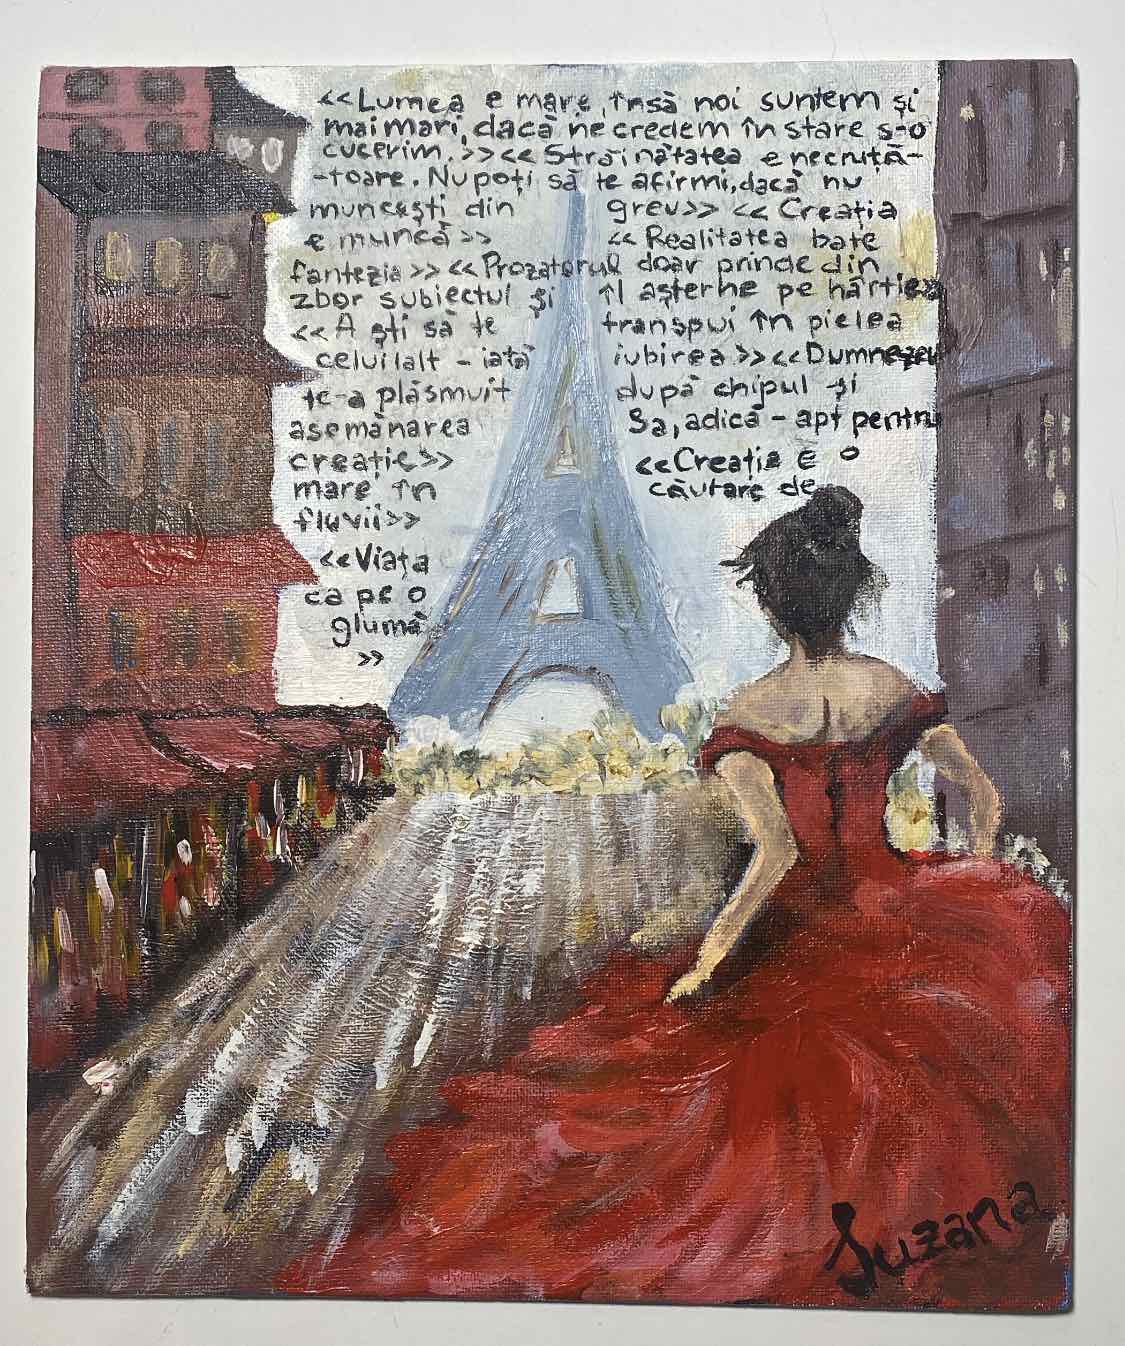 <<Lumea e mare, însă noi suntem și
mai mari, dacă ne credem în stare s-o
cucerim.>> << Străinătatea e necruță-
-toare. Nu poți să te afirmi, dacă nu
muncești din greu>> << Creația
e muncă>> << Realitatea bate
fantezia>> <<Prozatorul doar prinde din
zbor subiectul și îl așterne pe hârtie>>
<<A ști să te transpui în pielea
celuilalt - iată iubirea>> <<Dumnezeu
te-a plăsmuit după chipul și
asemănarea Sa, adică - apt pentru
creație>> <<Creația e o
mare în căutare de
fluvii>>
<<Viața
ca pe o
glumă
>>
Suzana